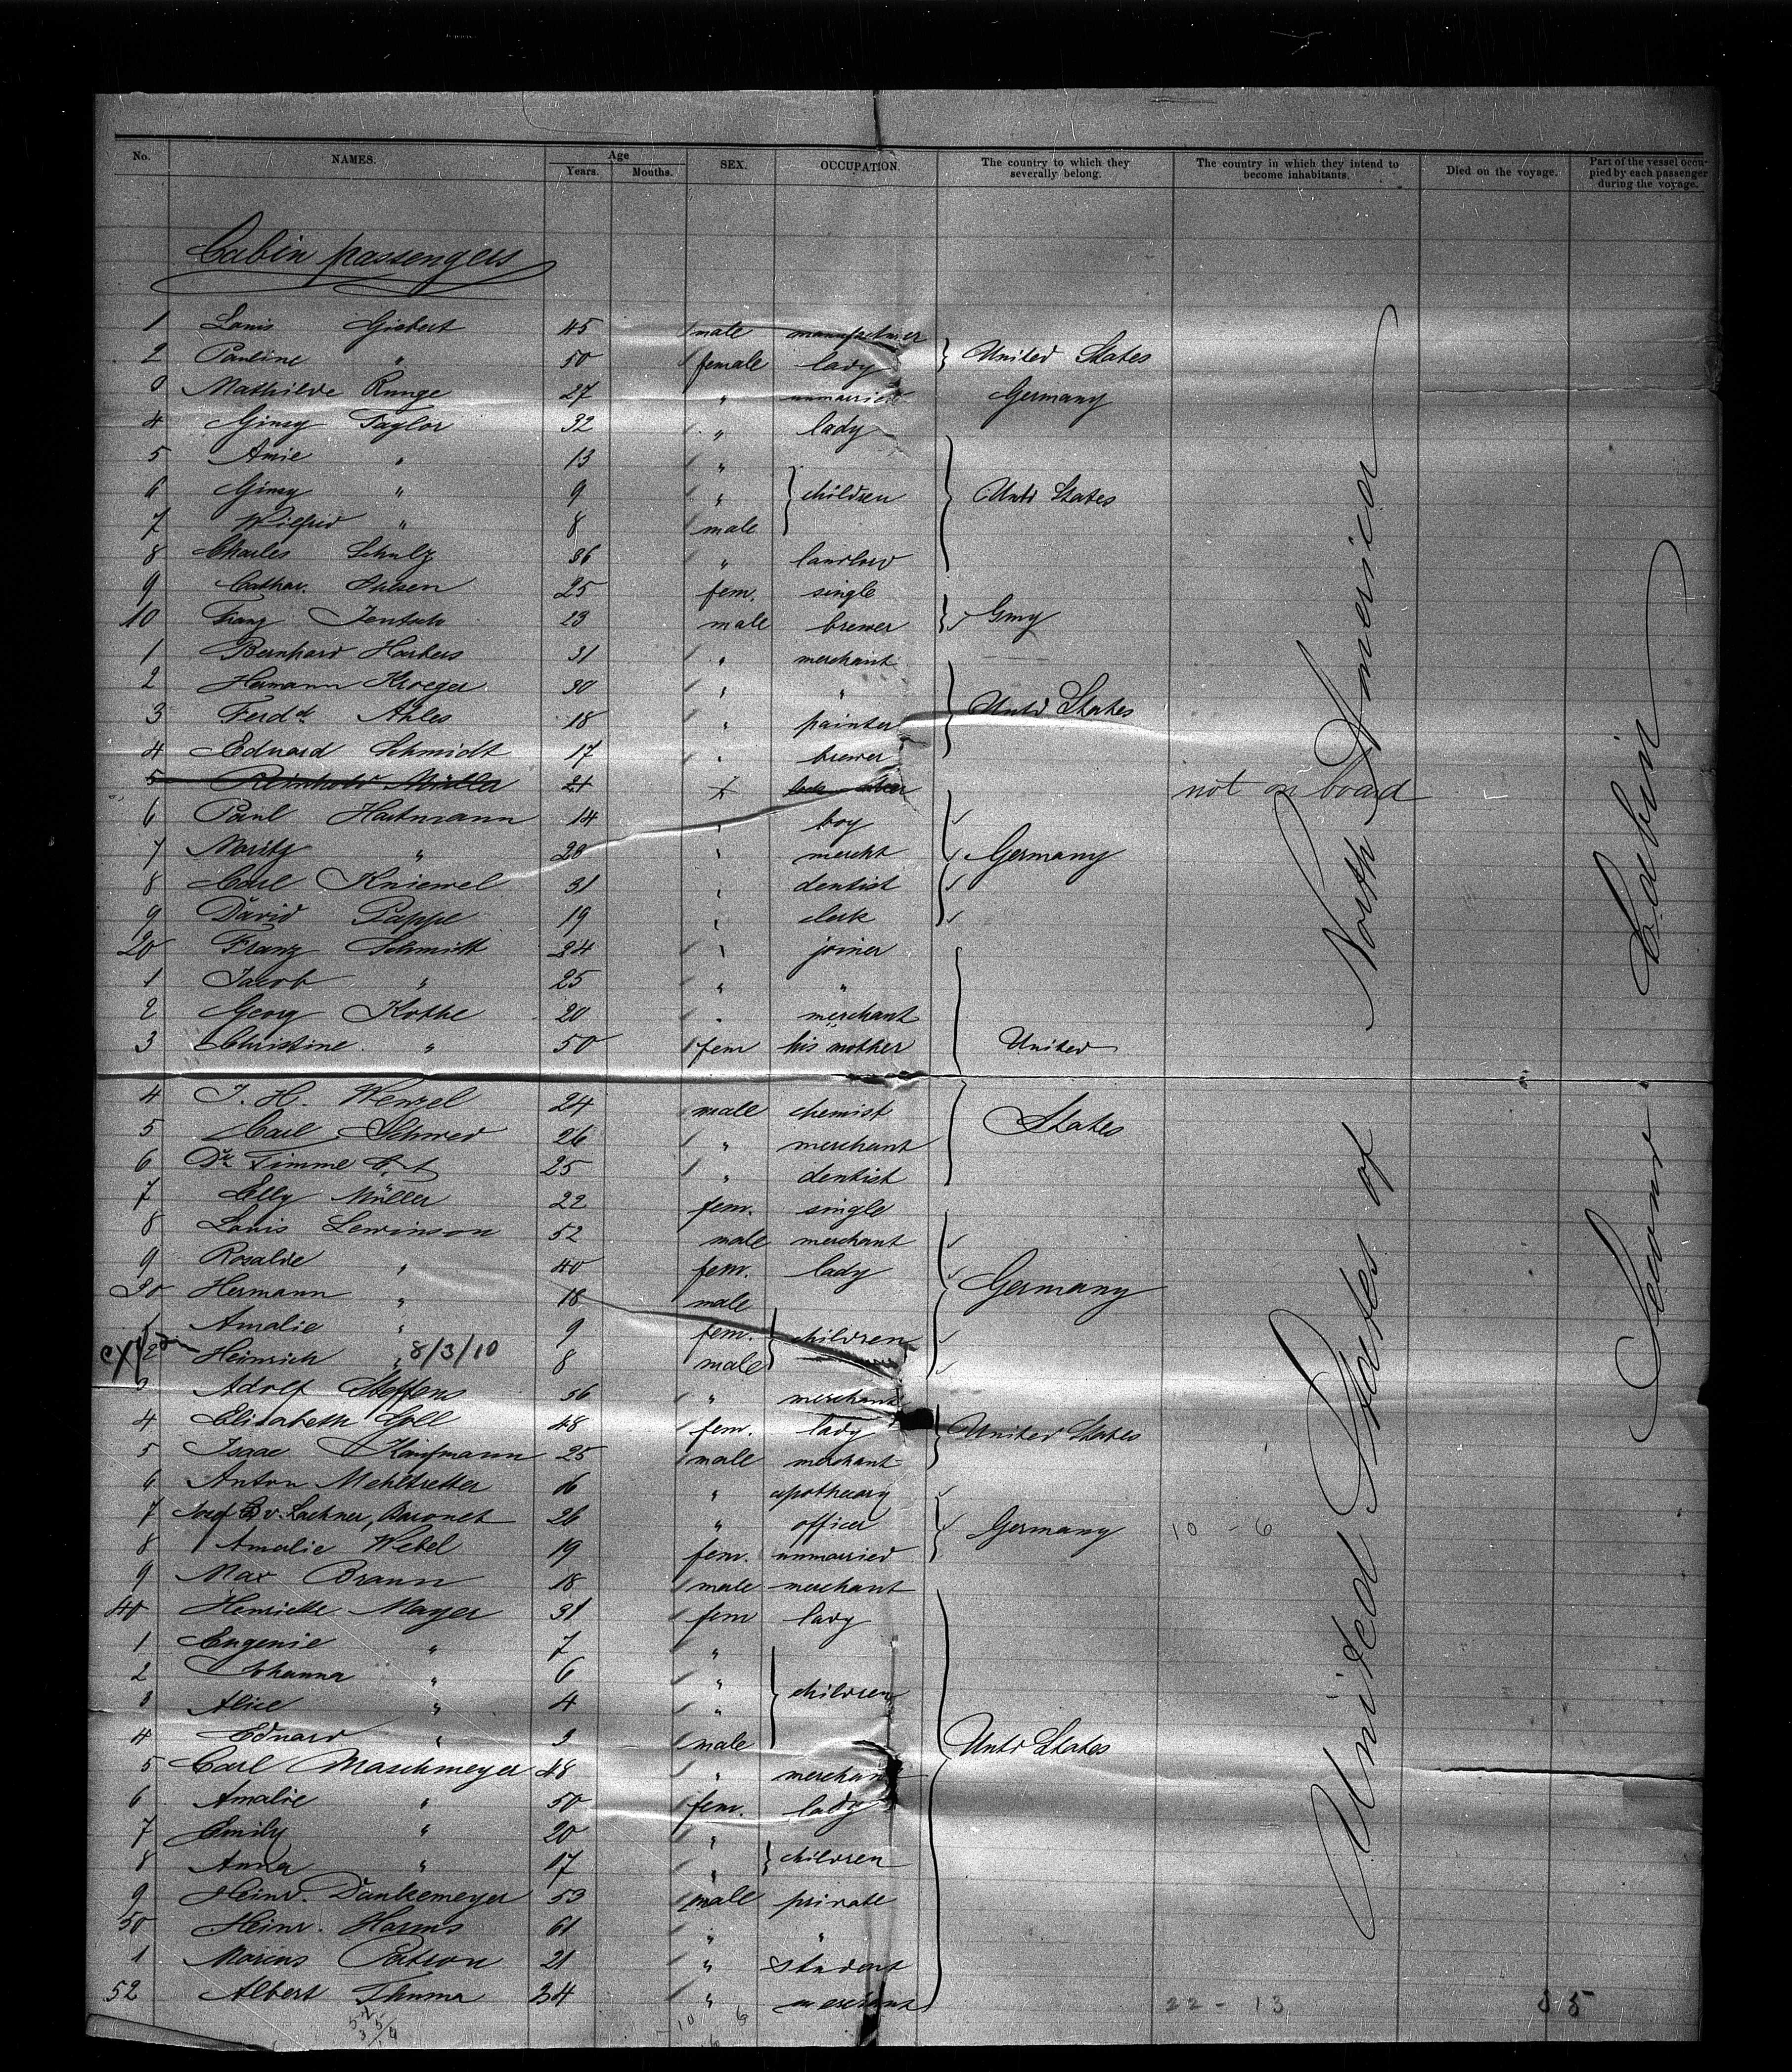 No. NAMES. Age Years. Months. SEX. OCCUPATION. The country to which they severally belong. The country in which they intend to become inhabitants. Died on the voyage. Part of the vessel occupied by each passenger during the voyage.
Cabin passengers
1 Louis Giebert 45 male manufacturer
2 Pauline " 50 female lady } United States
3 Mathilde Runge 27 " unmarried Germany
4 Ginsy Taylor 32 " lady
5 Amie " 13 "
6 Ginsy " 9 " } children } Untd States
7 Wilfrid " 8 male
8 Charles Schulz 36 " landlord
9 Cathar. 25 fem. single
10 Franz Jentsch 23 male brewer } Gmy
1 Bernhard Harbers 31 " merchant
2 Hermann Kroeger 30 " "
3 Ferdd Ahles 18 " painter } Untd States
4 Eduard Schmidt 17 " brewer
5 Reinhold Müller 21 not on board
6 Paul Hartmann 14 " boy
7 Moritz " 20 " mercht } Germany
8 Carl Kniewel 31 " dentist
9 David Pappe 19 " clerk
20 Franz Schmidt 24 " joiner
1 Jacob " 25 " "
2 Georg Kothe 20 " merchant
3 Christine " 50 fem his mother United
4 J. H. Wenzel 24 male chemist
5 Carl Schwed 26 " merchant States
6 Dr. Timme 25 " dentist
7 Elly Müller 22 fem. single
8 Louis Lewinson 52 male merchant
9 Rosalie " 40 fem. lady
30 Hermann " 18 male Germany
1 Amalie " 9 fem. } children
2 Heinrich " 8/3/10 8 male
3 Adolf Steffens 36 " merchant
4 Elisabeth Goll 48 fem. lady } United States
5 Isaac Kaufmann 25 male merchant
6 Anton Mehltretter 16 " apothecary
7 v. Lachner, Baronet 26 " officer } Germany 10 - 6
8 Amalie Webel 19 fem. unmarried
9 Max Braun 18 male merchant
40 Henriette Mayer 31 fem lady
1 Eugenie " 7 "
2 Johanna " 6 " } children
3 Alice " 4 "
4 Eduard " 3 male Untd States
5 Carl Maschmeyer 48 " merchant
6 Amalie " 50 fem. lady
7 Emily " 20 "
8 Anna " 17 " } children
9 Heinr. Dankemeyer 53 male private
50 Heinr. Harms 61 " "
1 Marcus 21 " student
52 Albert Thuma 34 " merchant 22 - 13
United States of North America
Second Cabin